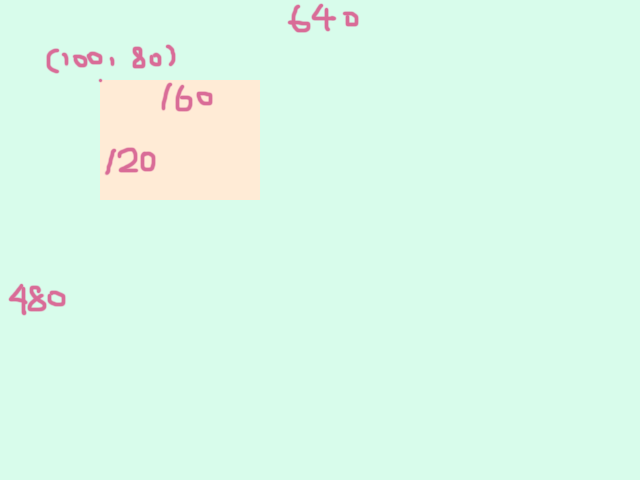 640
(100, 80)
160
120
480